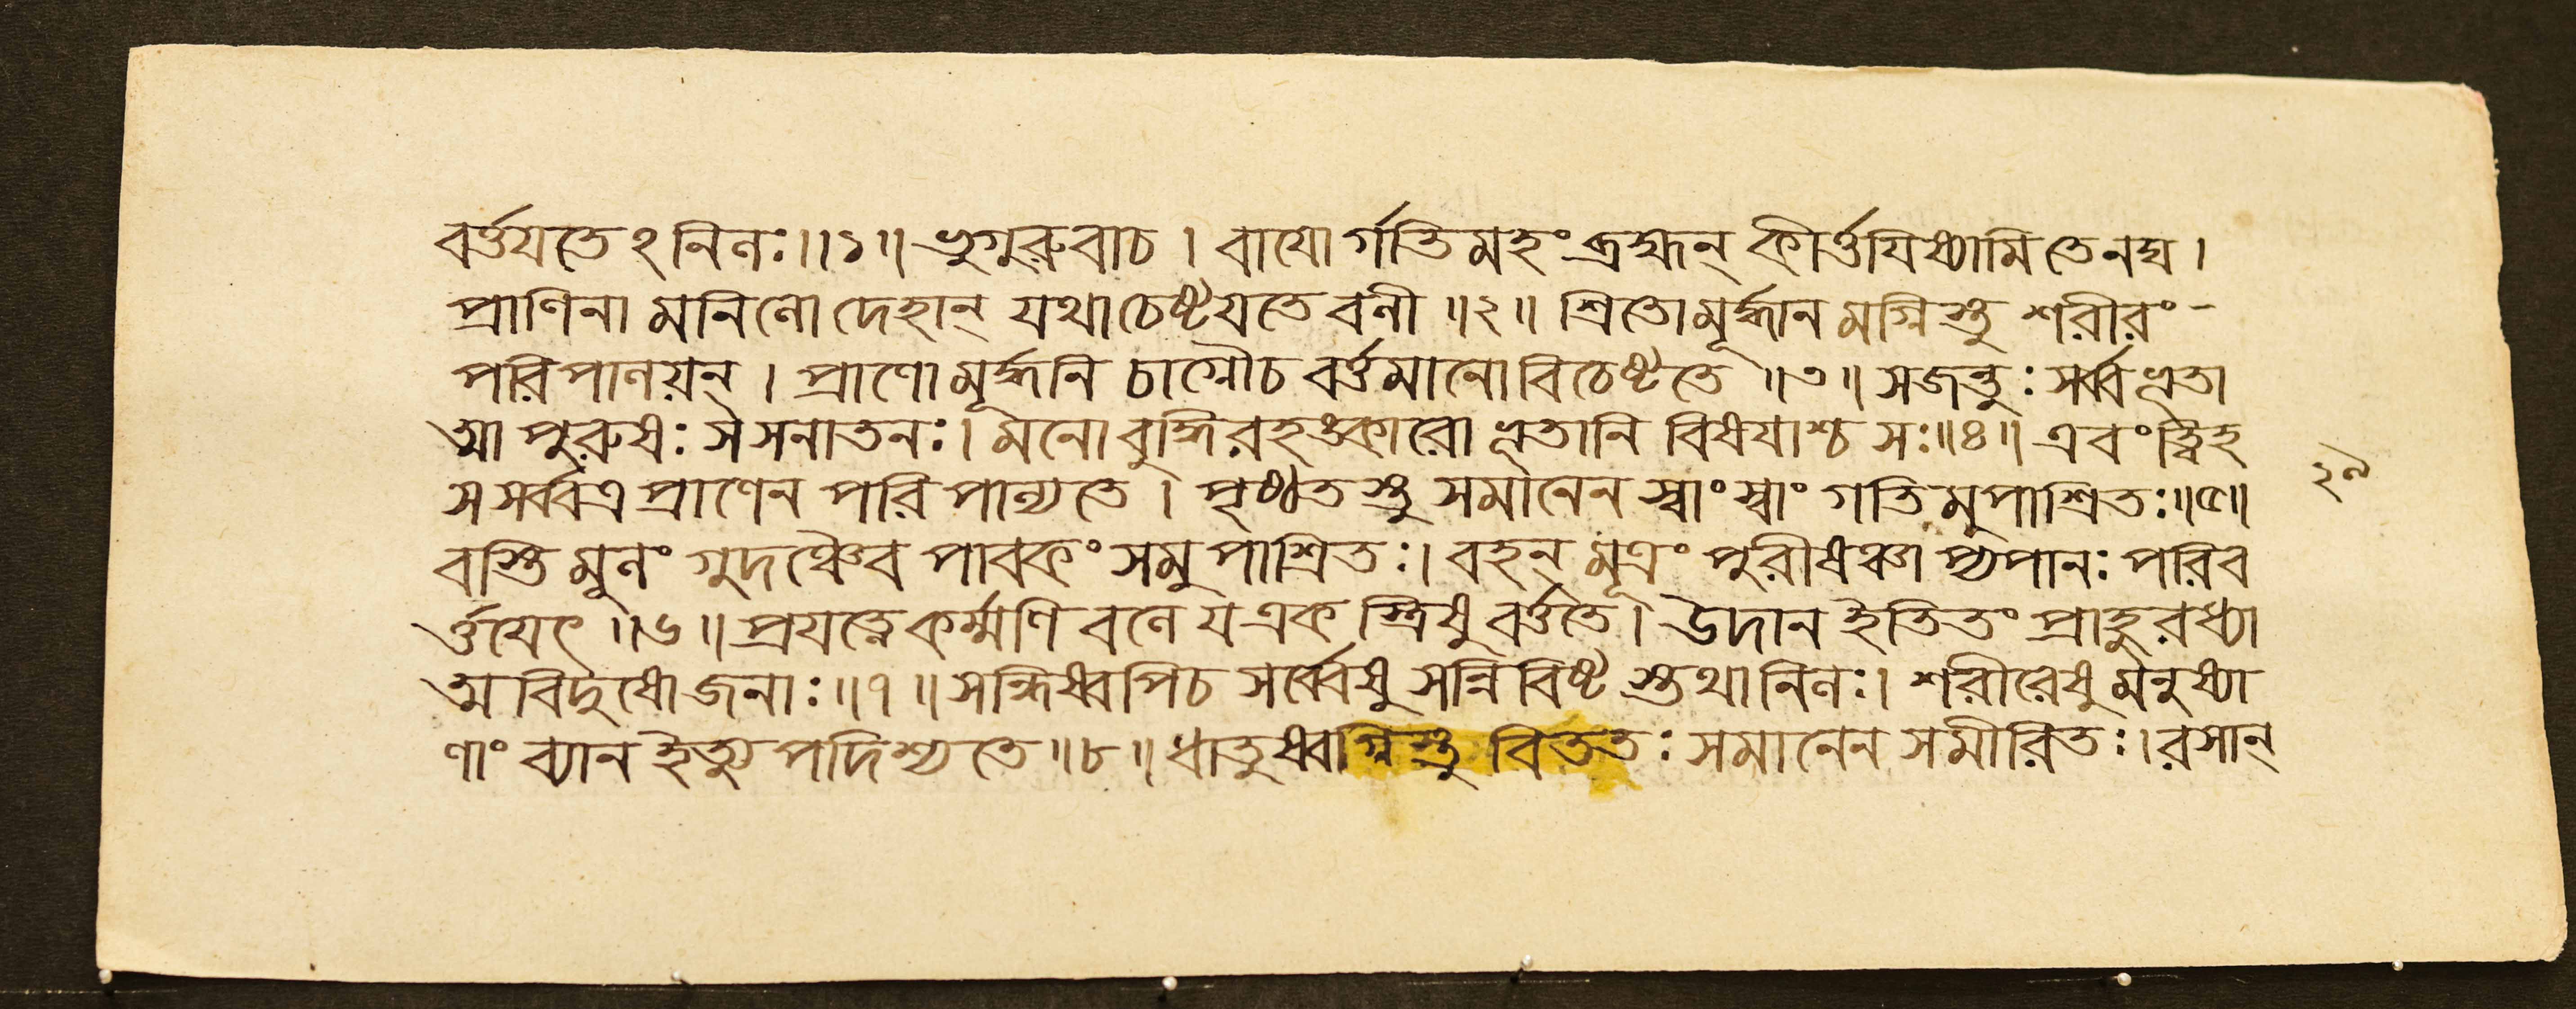 বর্ত্তয়তেঽনিলঃ॥১॥ ভৃগুরুবাচ। বায়োর্গতিমহং ব্রহ্মন্ কীর্ত্তয়িষ্যামি তেনঘ।
প্রাণিনামনিলো দেহান্ যথা চেষ্টয়তে বলী॥২॥ শ্রিতো মূর্দ্ধানমগ্নিস্তু শরীরং-
পরিপালয়ন্। প্রাণো মূর্দ্ধনি চাগ্নৌ চ বর্ত্তমানো বিচেষ্টতে॥৩॥ স জন্তুঃ সর্ব্বভূতা
ত্মা পুরুষঃ স সনাতনঃ। মনো বুদ্ধিরহঙ্কারো ভূতানি বিষয়াশ্চ সঃ॥৪॥ এবং ত্বিহ
স সর্ব্বত্র প্রাণেন পরিপাল্যতে। পৃষ্ঠতস্তু সমানেন স্বাং স্বাং গতিমুপাশ্রিতঃ॥৫॥
বস্তিমূলং গুদঞ্চৈব পাবকং সমুপাশ্রিতঃ। বহন্ মূত্রং পুরীষঞ্চাপ্যপানঃ পরিব
র্ত্তয়েৎ॥৬॥ প্রযত্নে কর্ম্মণি বলে য একস্ত্রিষু বর্ত্ততে। উদান ইতি তং প্রাহুরধ্যা
ত্মবিদুষো জনাঃ॥৭॥ সন্ধিষ্বপি চ সর্ব্বেষু সন্নিবিষ্টস্তথানিলঃ। শরীরেষু মনুষ্যা
ণাং ব্যান ইত্যুপদিশ্যতে॥৮॥ ধাতুষ্বগ্নিস্তু বিততঃ সমানেন সমীরিতঃ। রসান্